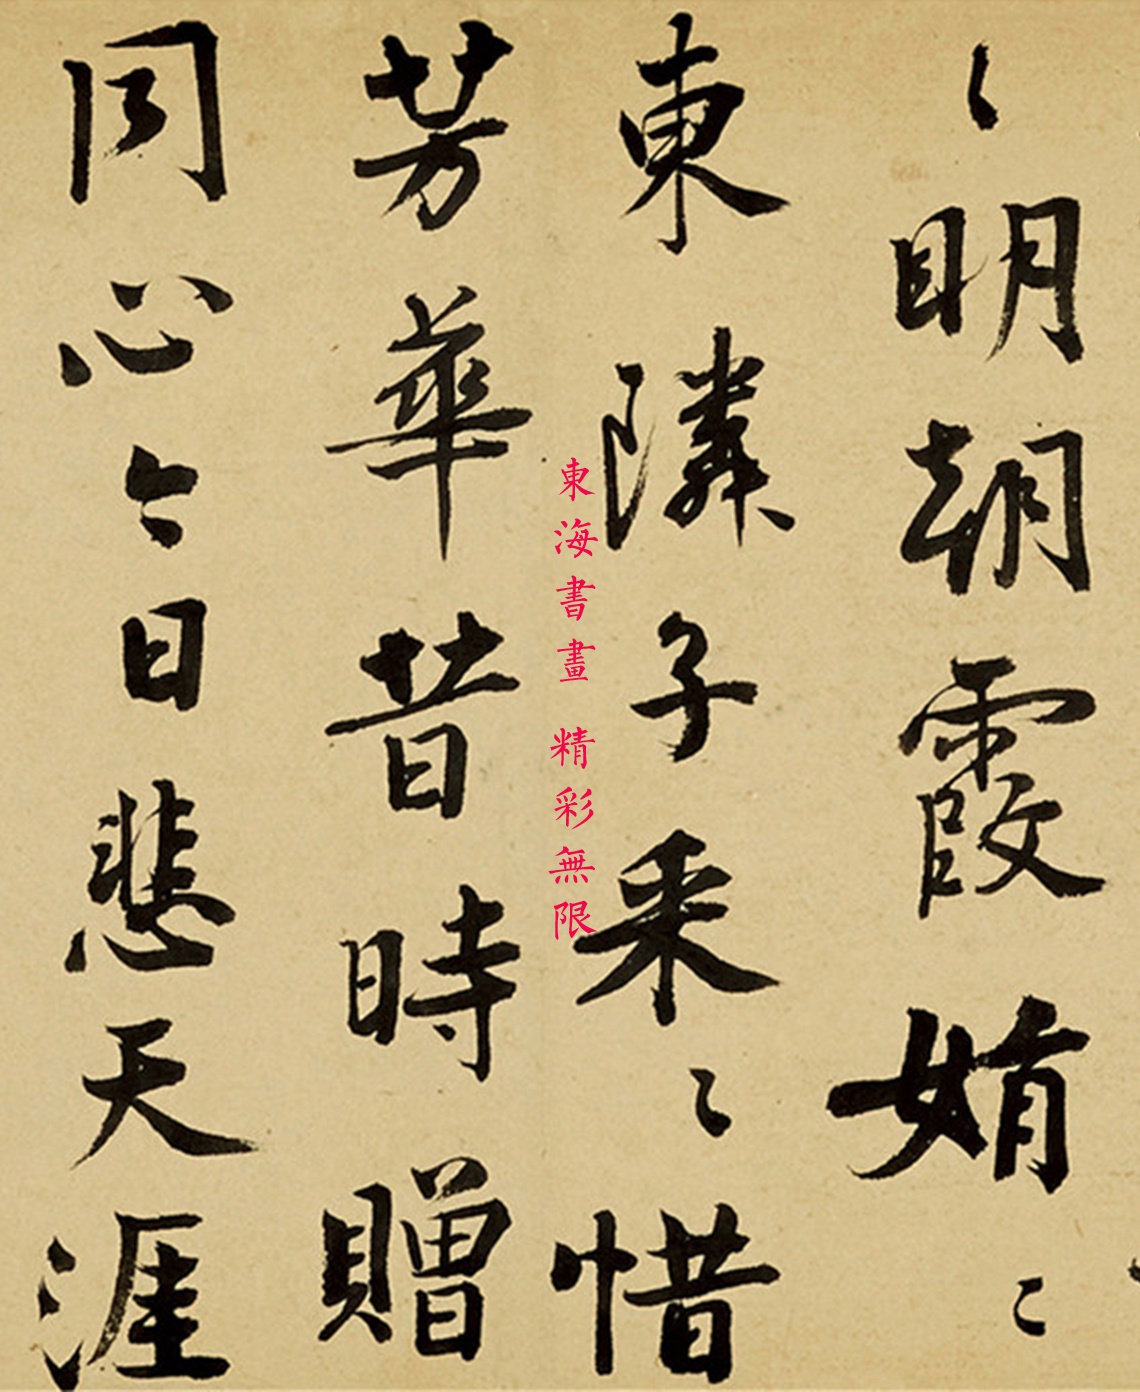 〻明朝霞娟〻
東隣子采〻惜
芳華昔時贈
同心今日悲天涯
東海書畫 精彩無限